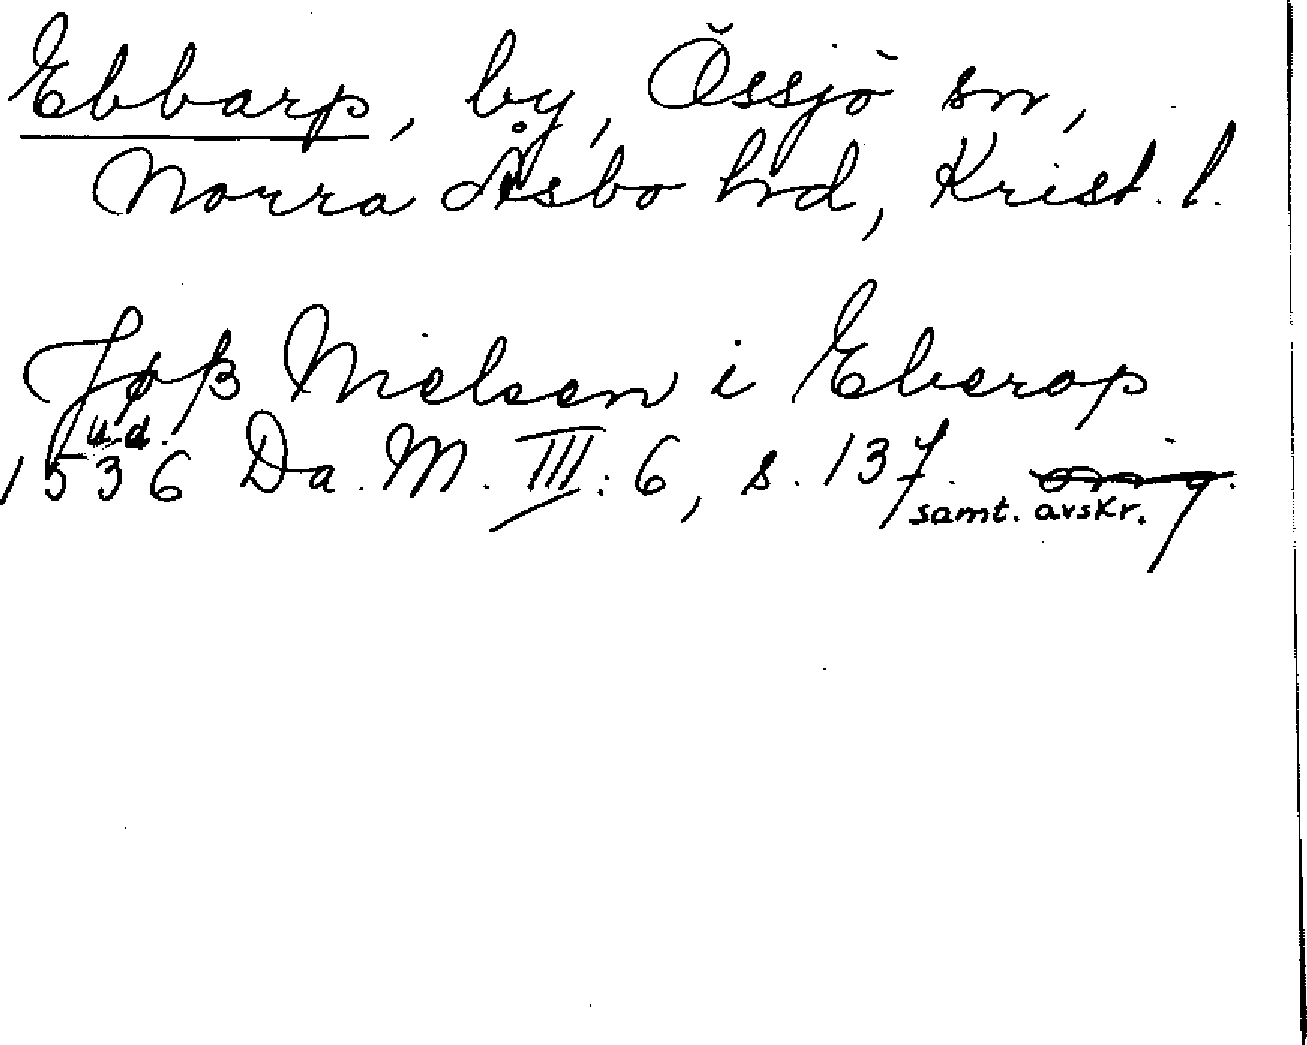 Ebbarp, by, Össjö sn,
Norra Åsbo hd, Krist. l.
Jøß Nielsen i Eberop
u.d.
1536 Da. M. III: 6, s. 137. orig.
samt. avskr.